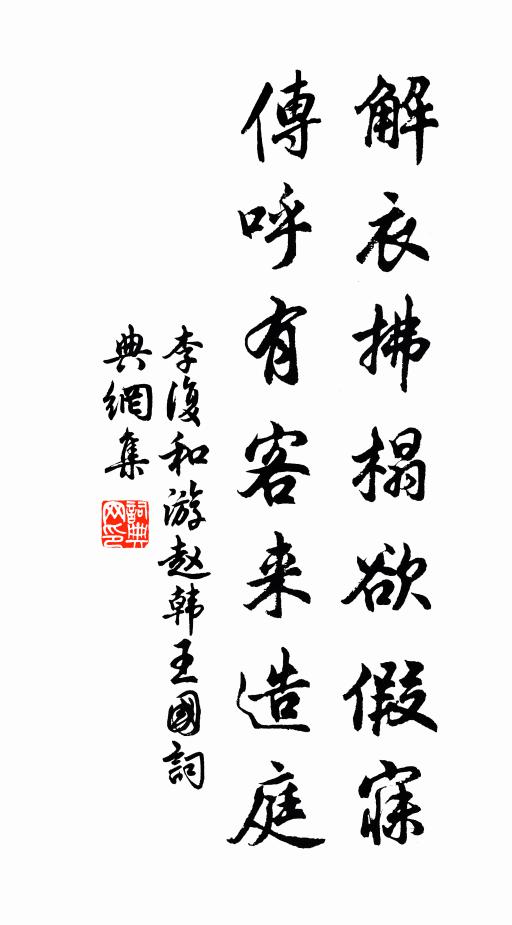 解衣拂榻欲假寐
傳呼有客来造庭
李復和游赵韩王國詞
典網集
詞典
网印